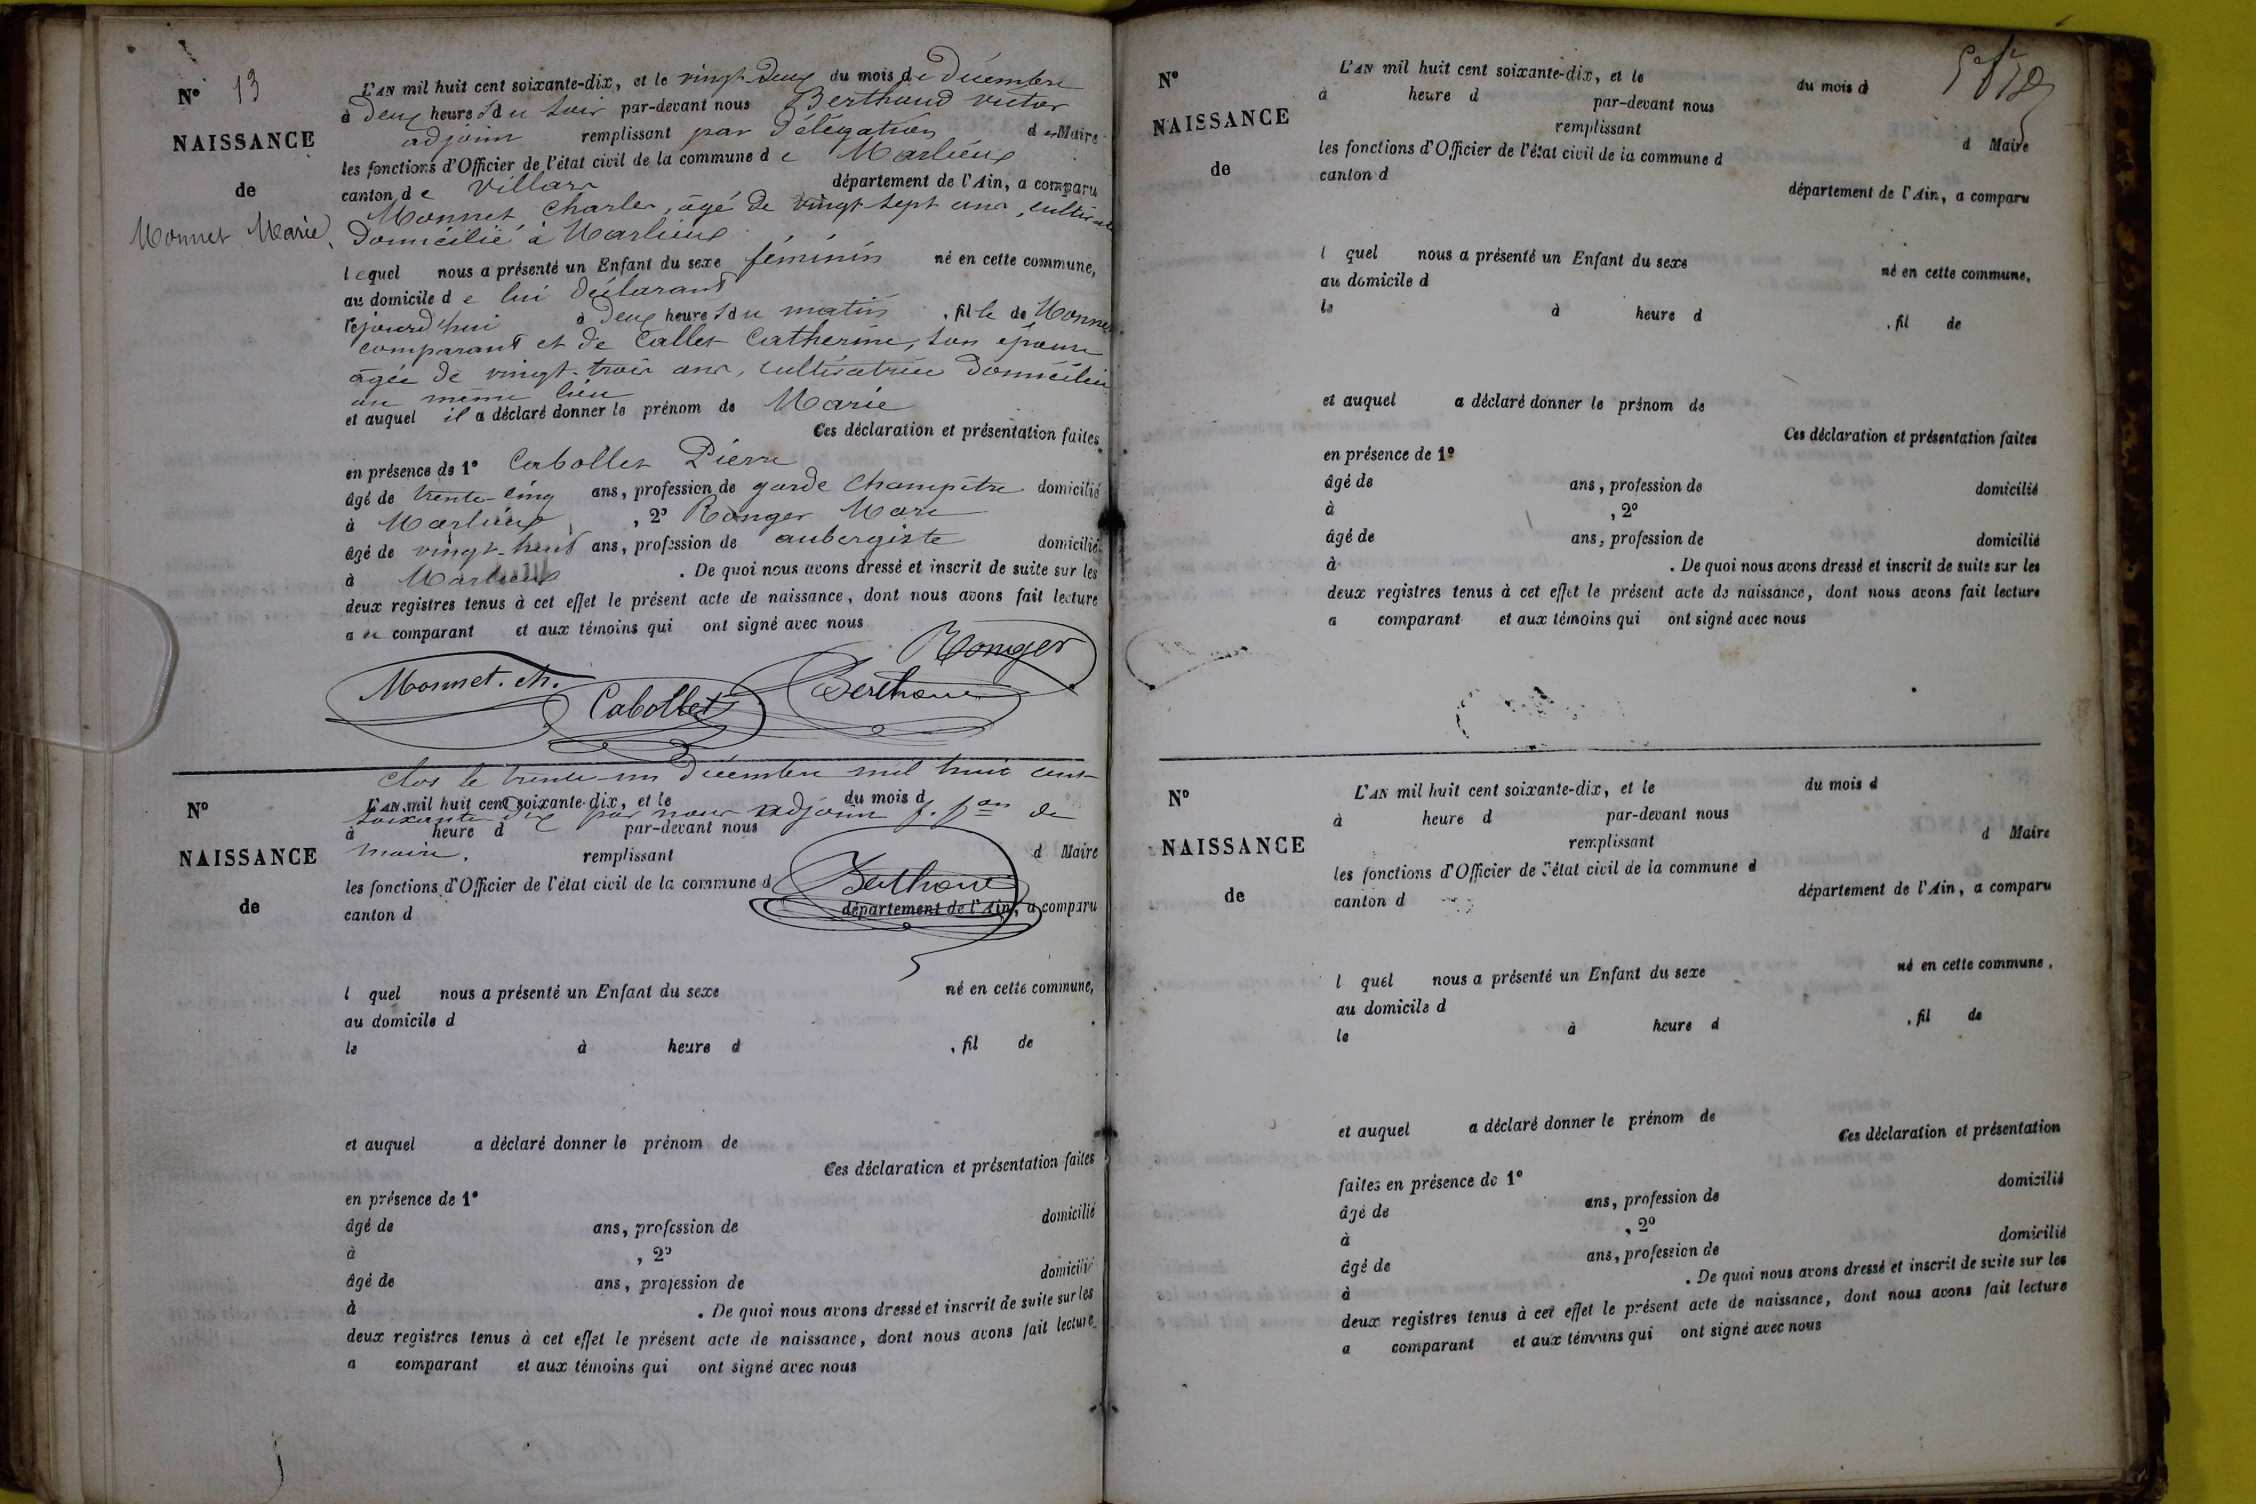 N° 13
NAISSANCE
de
Monnet Marie,
L'AN mil huit cent soixante-dix, et le vingt-deux du mois de Décembre
à deux heures du soir par-devant nous Berthaud victor
adjoint remplissant par Délégation de Maire
les fonctions d'Officier de l'état civil de la commune de Marlieux
canton de Villars département de l'Ain, a comparu
Monnet Charles, âgé de vingt-sept ans, cultivateur
Domicilié à Marlieux
lequel nous a présenté un Enfant du sexe féminin né en cette commune,
au domicile de lui Déclarant
cejourd'hui à deux heures du matin, fille de Monnet
comparant et de Callet Catherine, son épouse
âgée de vingt-trois ans, cultivatrice Domiciliée
au même lieu
et auquel il a déclaré donner le prénom de Marie
Ces déclaration et présentation faites
en présence de 1° Cabollet Pierre
âgé de trente-cinq ans, profession de garde Champêtre domicilié
à Marlieux, 2° Ronger Marc
âgé de vingt-huit ans, profession de aubergiste domicilié
à Marlieux. De quoi nous avons dressé et inscrit de suite sur les
deux registres tenus à cet effet le présent acte de naissance, dont nous avons fait lecture
au comparant et aux témoins qui ont signé avec nous
Ronger
Monnet. ch. Cabollet Berthaud
Clos le trente-un Décembre mil huit cent
N° L'AN mil huit cent soixante-dix, et le du mois d
soixante Dix par nous adjoint f. f.on de
à heure d par-devant nous
maire.
NAISSANCE remplissant d Maire
Berthaud
les fonctions d'Officier de l'état civil de la commune d
de canton d département de l'Ain, a comparu
l quel nous a présenté un Enfant du sexe né en cette commune,
au domicile d
le à heure d , fil de
et auquel a déclaré donner le prénom de
Ces déclaration et présentation faites
en présence de 1°
âgé de ans, profession de domicilié
à , 2°
âgé de ans, profession de domicilié
à . De quoi nous avons dressé et inscrit de suite sur les
deux registres tenus à cet effet le présent acte de naissance, dont nous avons fait lecture
a comparant et aux témoins qui ont signé avec nous
N° L'AN mil huit cent soixante-dix, et le du mois d
à heure d par-devant nous
NAISSANCE remplissant d Maire
les fonctions d'Officier de l'état civil de la commune d
de canton d département de l'Ain, a comparu
l quel nous a présenté un Enfant du sexe né en cette commune,
au domicile d
le à heure d , fil de
et auquel a déclaré donner le prénom de
Ces déclaration et présentation faites
en présence de 1°
âgé de ans, profession de domicilié
à , 2°
âgé de ans, profession de domicilié
à . De quoi nous avons dressé et inscrit de suite sur les
deux registres tenus à cet effet le présent acte de naissance, dont nous avons fait lecture
a comparant et aux témoins qui ont signé avec nous
N° L'AN mil huit cent soixante-dix, et le du mois d
à heure d par-devant nous
NAISSANCE remplissant d Maire
les fonctions d'Officier de l'état civil de la commune d
de canton d département de l'Ain, a comparu
l quel nous a présenté un Enfant du sexe né en cette commune,
au domicile d
le à heure d , fil de
et auquel a déclaré donner le prénom de
Ces déclaration et présentation
faites en présence de 1°
âgé de ans, profession de domicilié
à , 2°
âgé de ans, profession de domicilié
à . De quoi nous avons dressé et inscrit de suite sur les
deux registres tenus à cet effet le présent acte de naissance, dont nous avons fait lecture
a comparant et aux témoins qui ont signé avec nous